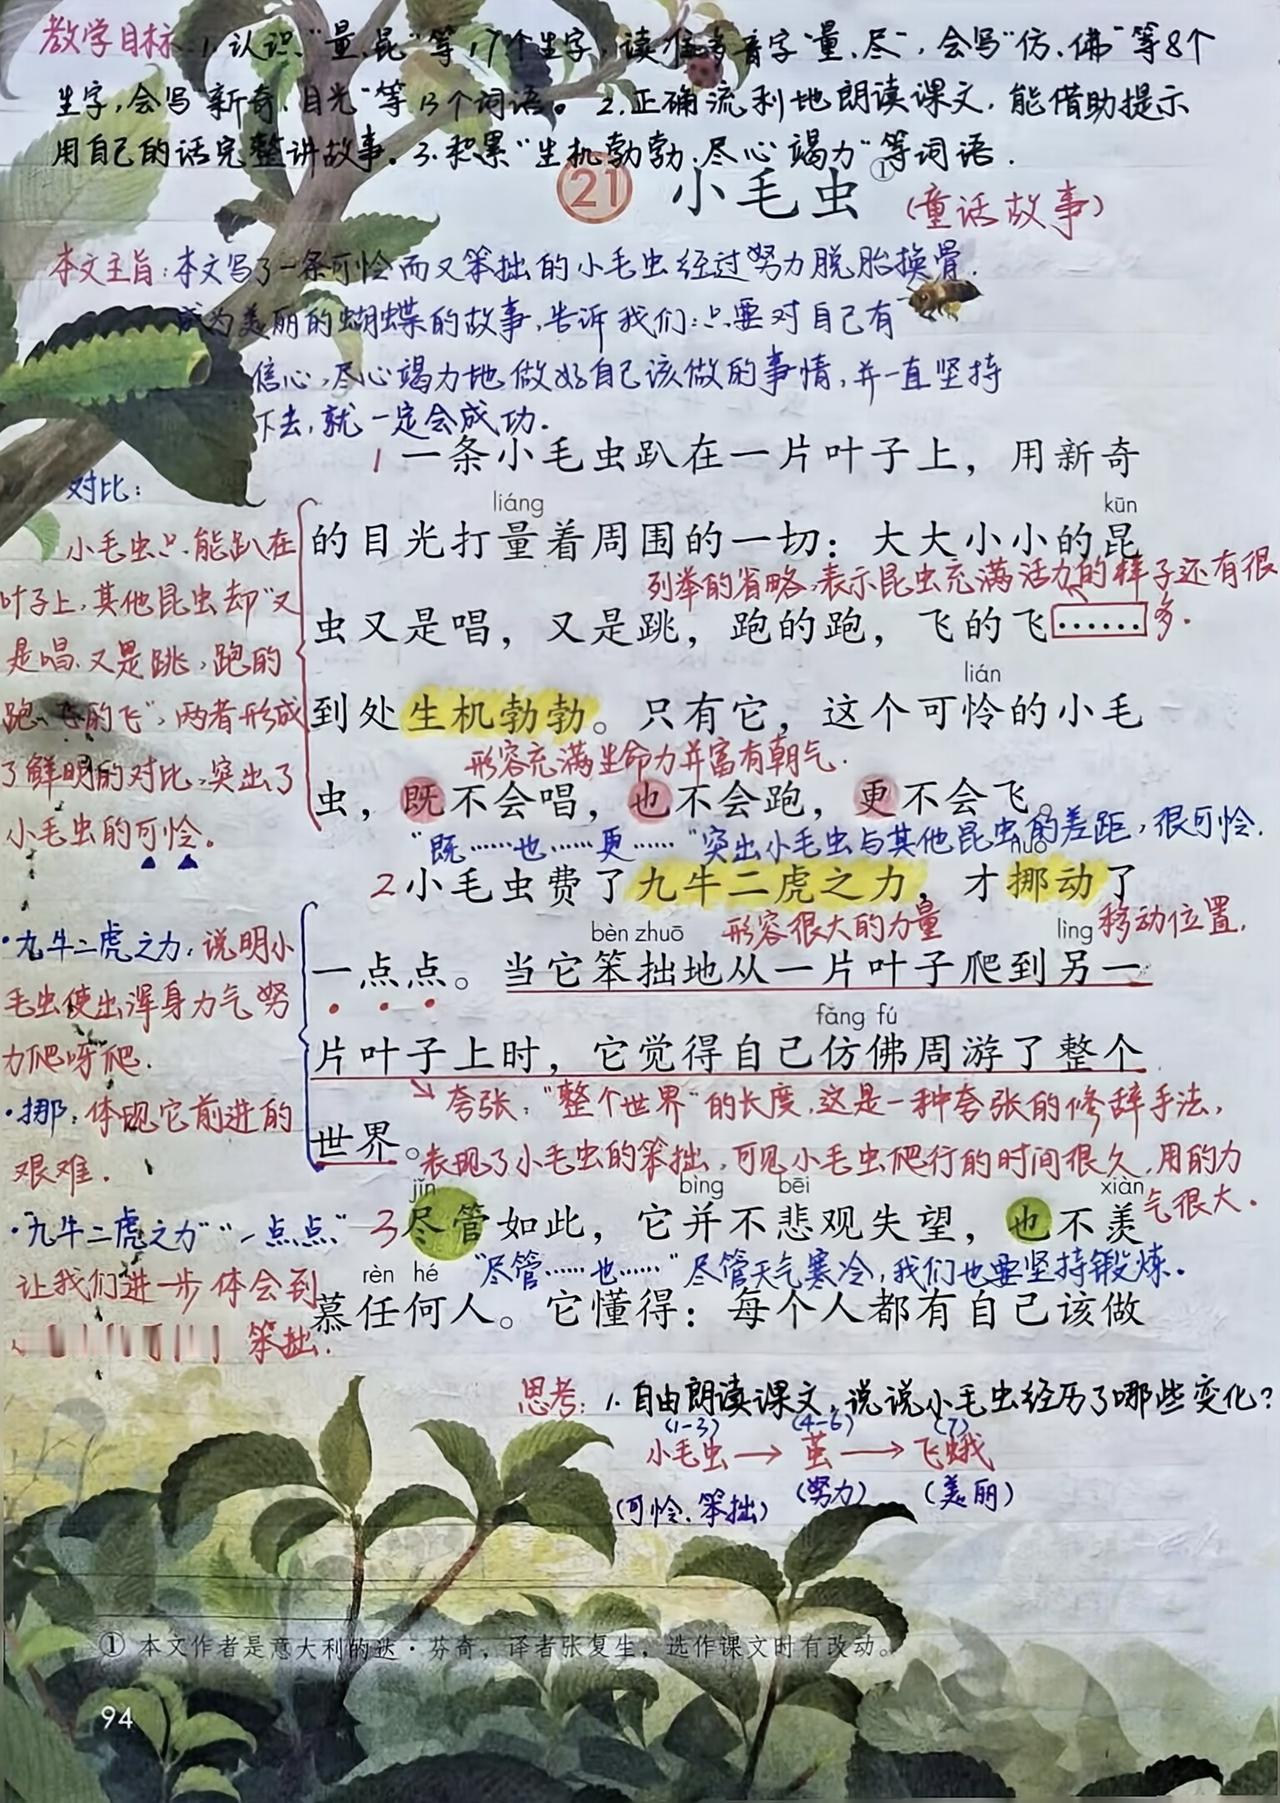 教学目标:1.认识“量、昆”等17个生字,读准多音字“量、尽”,会写“仿、佛”等8个
生字,会写“新奇、目光”等13个词语。2.正确流利地朗读课文,能借助提示
用自己的话完整讲故事。3.积累“生机勃勃、尽心竭力”等词语.
21 小毛虫①
(童话故事)
本文主旨:本文写了一条可怜而又笨拙的小毛虫经过努力脱胎换骨.
成为美丽的蝴蝶的故事,告诉我们:只要对自己有
信心,尽心竭力地做好自己该做的事情,并一直坚持
下去,就一定会成功.
1 一条小毛虫趴在一片叶子上,用新奇
liáng kūn
的目光打量着周围的一切:大大小小的昆
列举的省略,表示昆虫充满活力的样子还有很
多.
虫又是唱,又是跳,跑的跑,飞的飞……
lián
到处生机勃勃。只有它,这个可怜的小毛
形容充满生命力并富有朝气.
虫,既不会唱,也不会跑,更不会飞。
“既……也……更……”突出小毛虫与其他昆虫的差距,很可怜.
nuó
2小毛虫费了九牛二虎之力,才挪动了
形容很大的力量
移动位置.
bèn zhuō lìng
一点点。当它笨拙地从一片叶子爬到另一
fǎng fú
片叶子上时,它觉得自己仿佛周游了整个
夸张:“整个世界”的长度,这是一种夸张的修辞手法,
世界。
表现了小毛虫的笨拙,可见小毛虫爬行的时间很久,用的力
气很大.
jǐn bìng bēi xiàn
3尽管如此,它并不悲观失望,也不羡
“尽管……也……”尽管天气寒冷,我们也要坚持锻炼.
rèn hé
慕任何人。它懂得:每个人都有自己该做
对比:
小毛虫只能趴在
叶子上,其他昆虫却“又
是唱、又是跳,跑的
跑、飞的飞”,两者形成
了鲜明的对比,突出了
小毛虫的可怜。
·九牛二虎之力:说明小
毛虫使出浑身力气努
力爬呀爬.
·挪:体现它前进的
艰难.
·“九牛二虎之力”“一点点”
让我们进一步体会到
笨拙.
思考:1.自由朗读课文,说说小毛虫经历了哪些变化?
(1-3) (4-6) (7)
小毛虫→茧→飞蛾
(可怜、笨拙) (努力) (美丽)
① 本文作者是意大利的达·芬奇,译者张复生,选作课文时有改动。
94